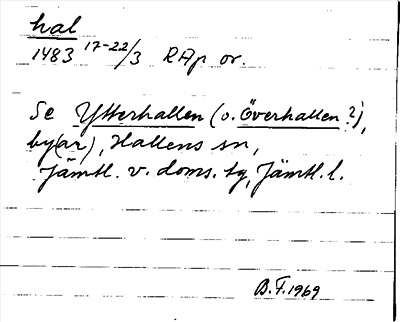 hal
1483 17-22/3 RAp or.
Se Ytterhallen (o. Överhallen?),
by(ar), Hallens sn,
Jämtl. v. doms. tg, Jämtl. l.
B.F. 1969